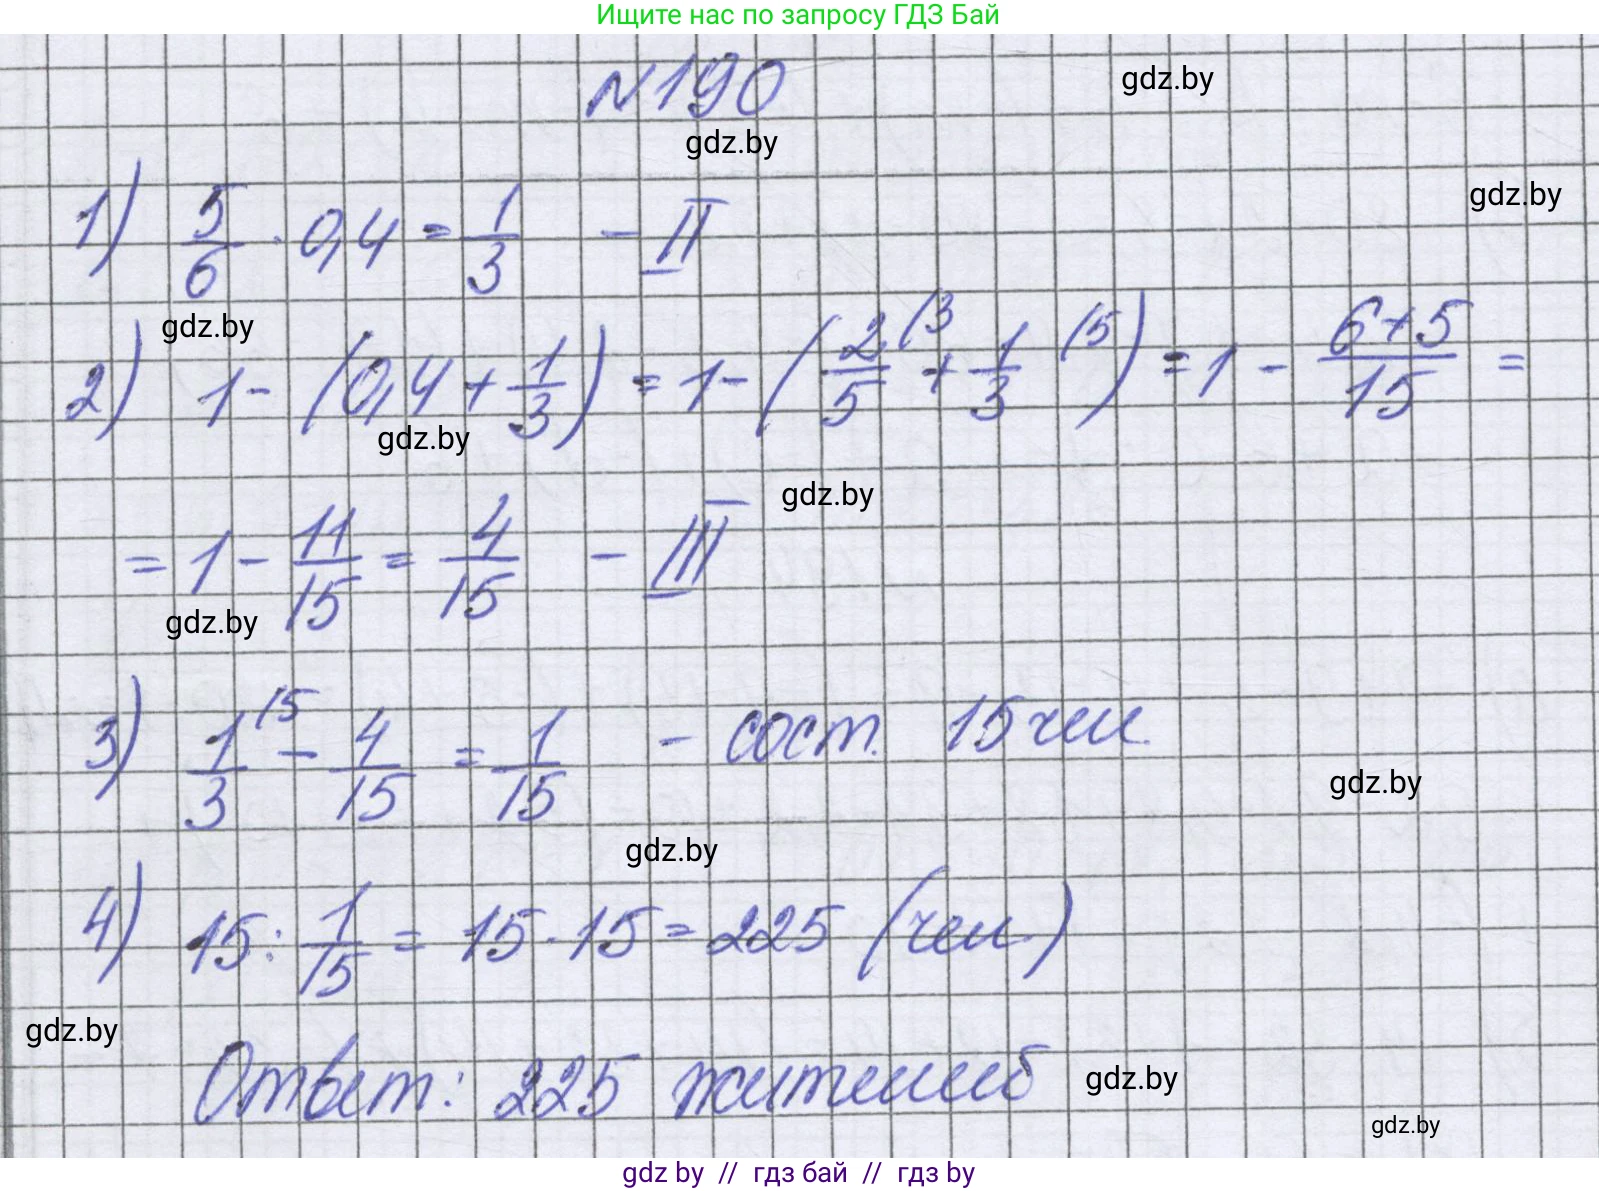 Ищите нас по запросу ГДЗ Бай
№190
gdz.by
gdz.by
gdz.by
1) 5/6 · 0,4 = 1/3 - II
gdz.by
2) 1 - (0,4 + 1/3) = 1 - (2/5 (3 + 1/3 (5) = 1 - 6+5/15 =
gdz.by
gdz.by
= 1 - 11/15 = 4/15 - III
gdz.by
3) 1/3 (5 - 4/15 = 1/15 - сост. 15 чел.
gdz.by
gdz.by
4) 15 : 1/15 = 15 · 15 = 225 (чел.)
gdz.by
Ответ: 225 жителей
gdz.by
gdz.by
gdz by // гдз бай // гдз by